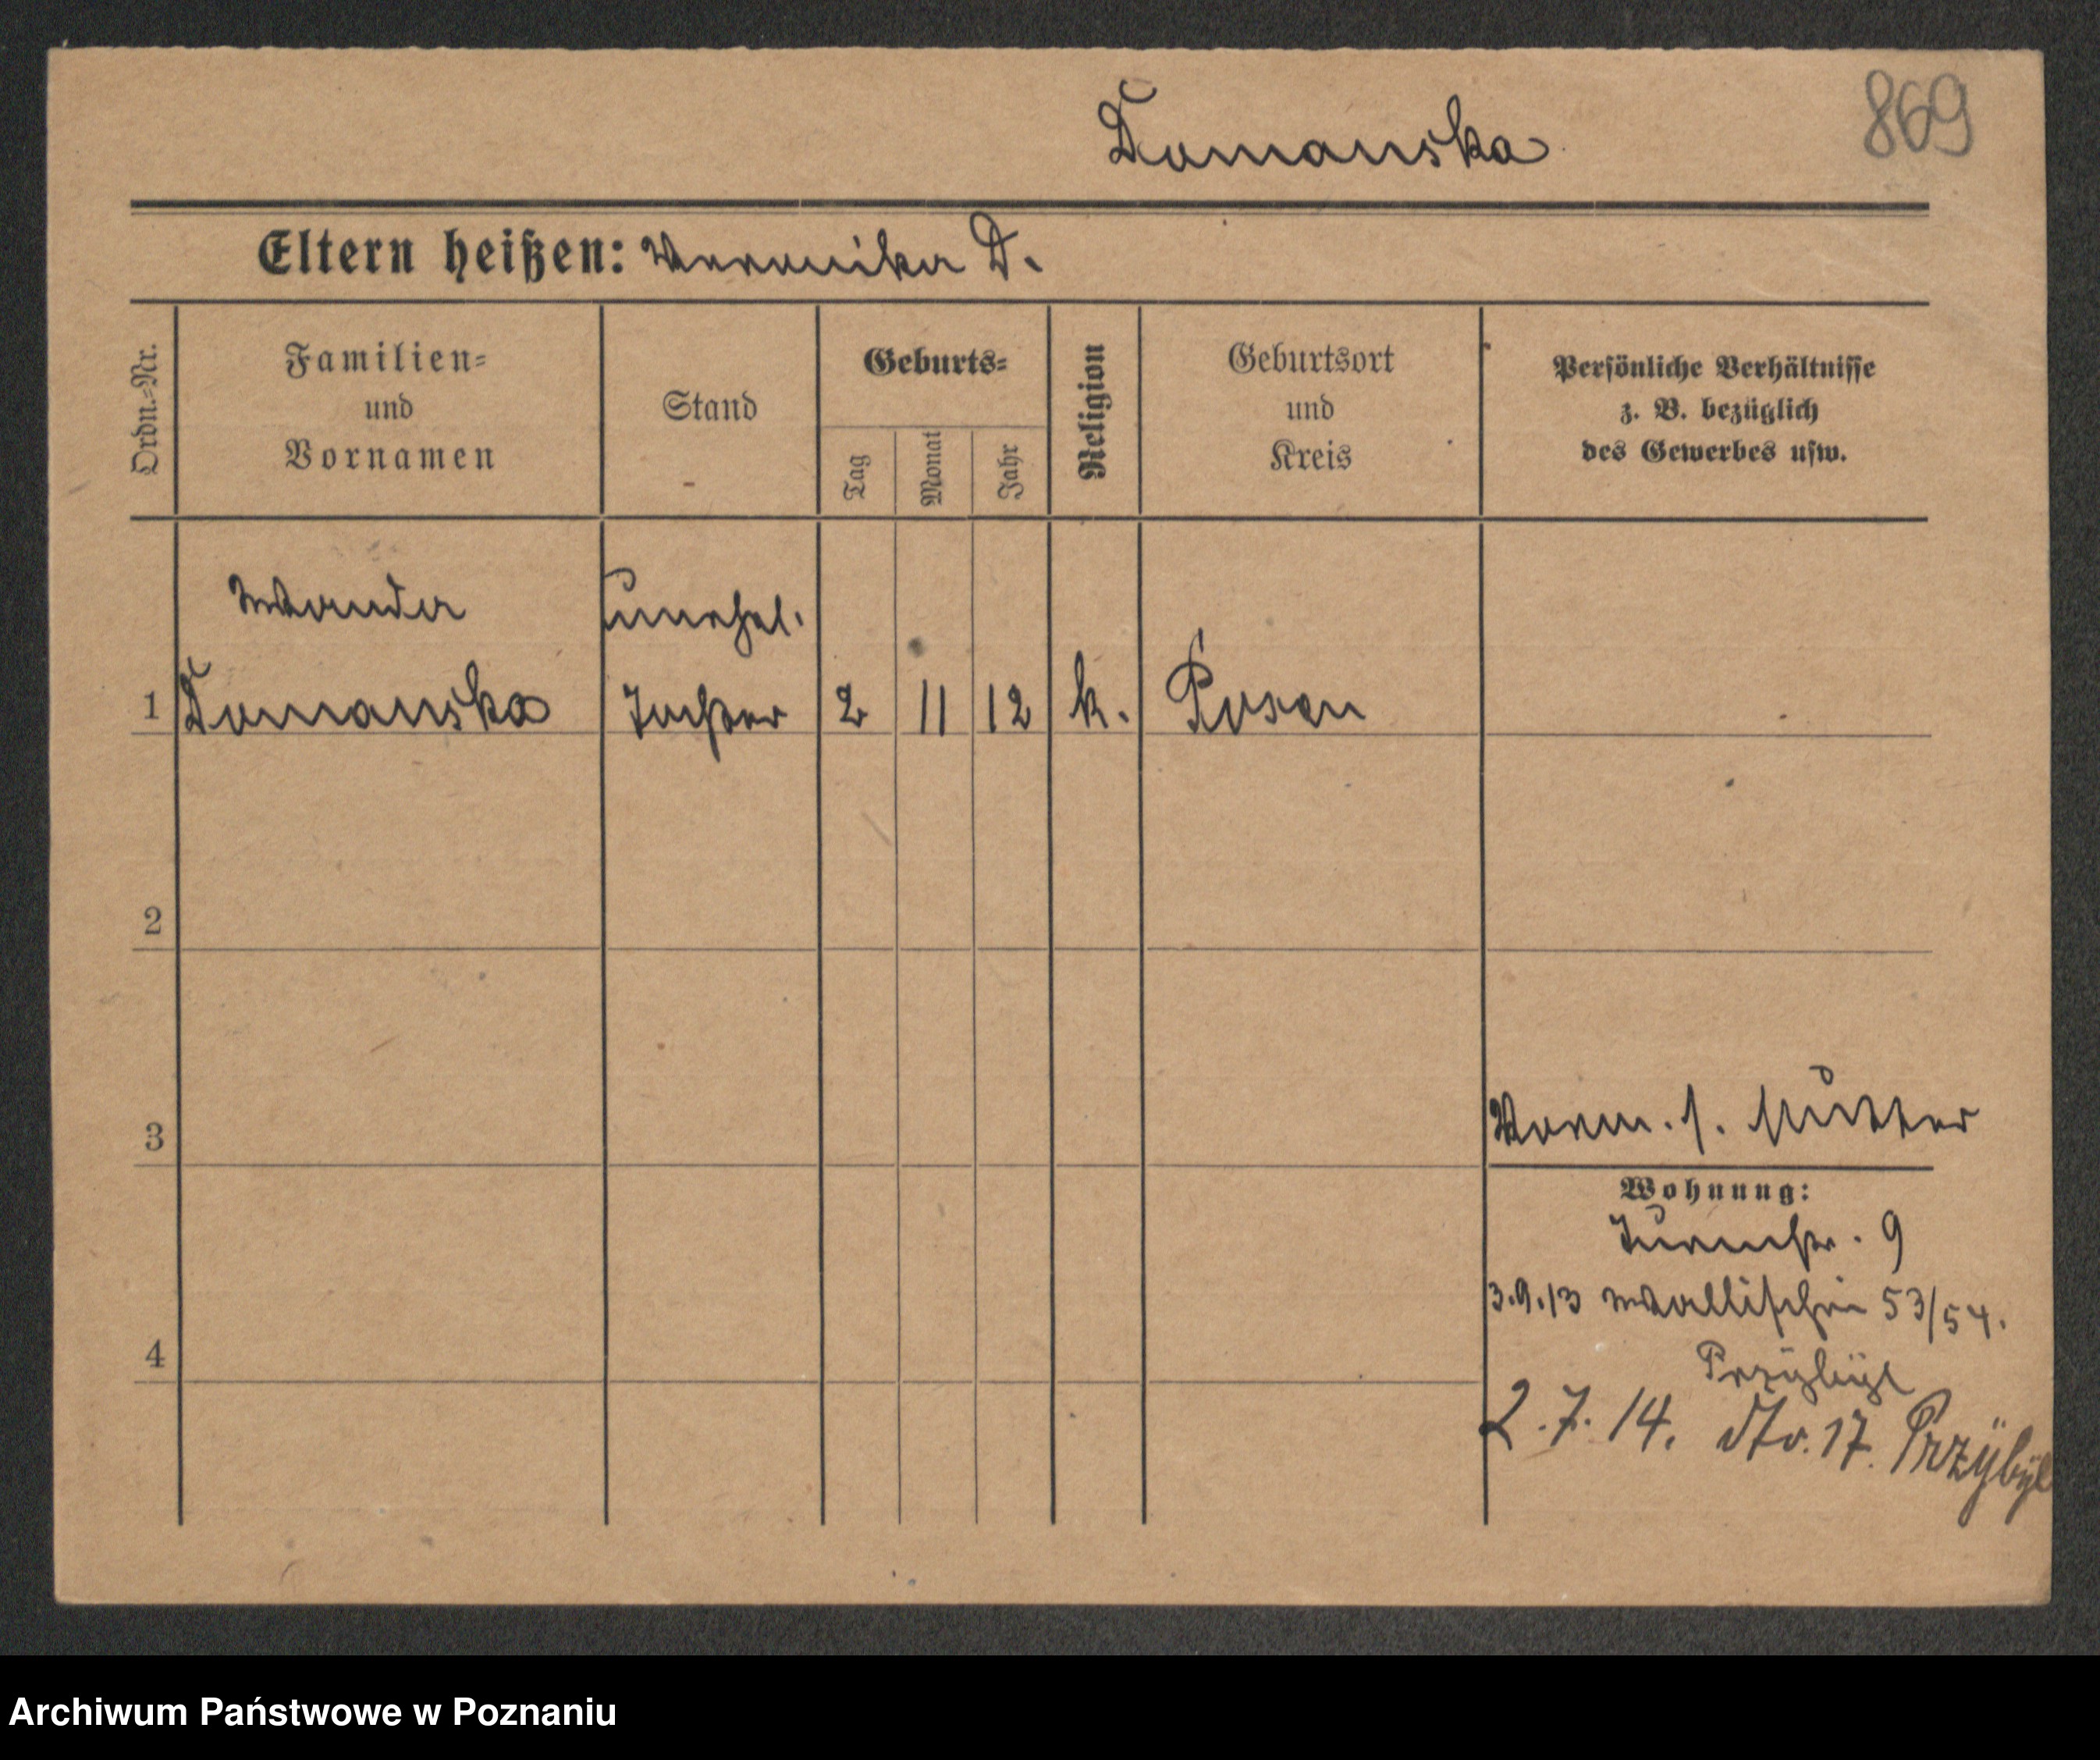 Domanska
869
Eltern heißen: Veronika D.
Ordn.=Nr.
Familien=
und
Vornamen
Stand
Geburts=
Tag
Monat
Jahr
Religion
Geburtsort
und
Kreis
Persönliche Verhältnisse
z. B. bezüglich
des Gewerbes usw.
Wanda
unehel.
1 Domanska Tochter 2 11 12 k. Posen
2
3
Vorm. s. Mutter
Wohnung:
Turmstr. 9
3.9.13 Wallischei 53/54.
Przybyl
4
2.7.14. dto. 17. Przÿbÿl
Archiwum Państwowe w Poznaniu